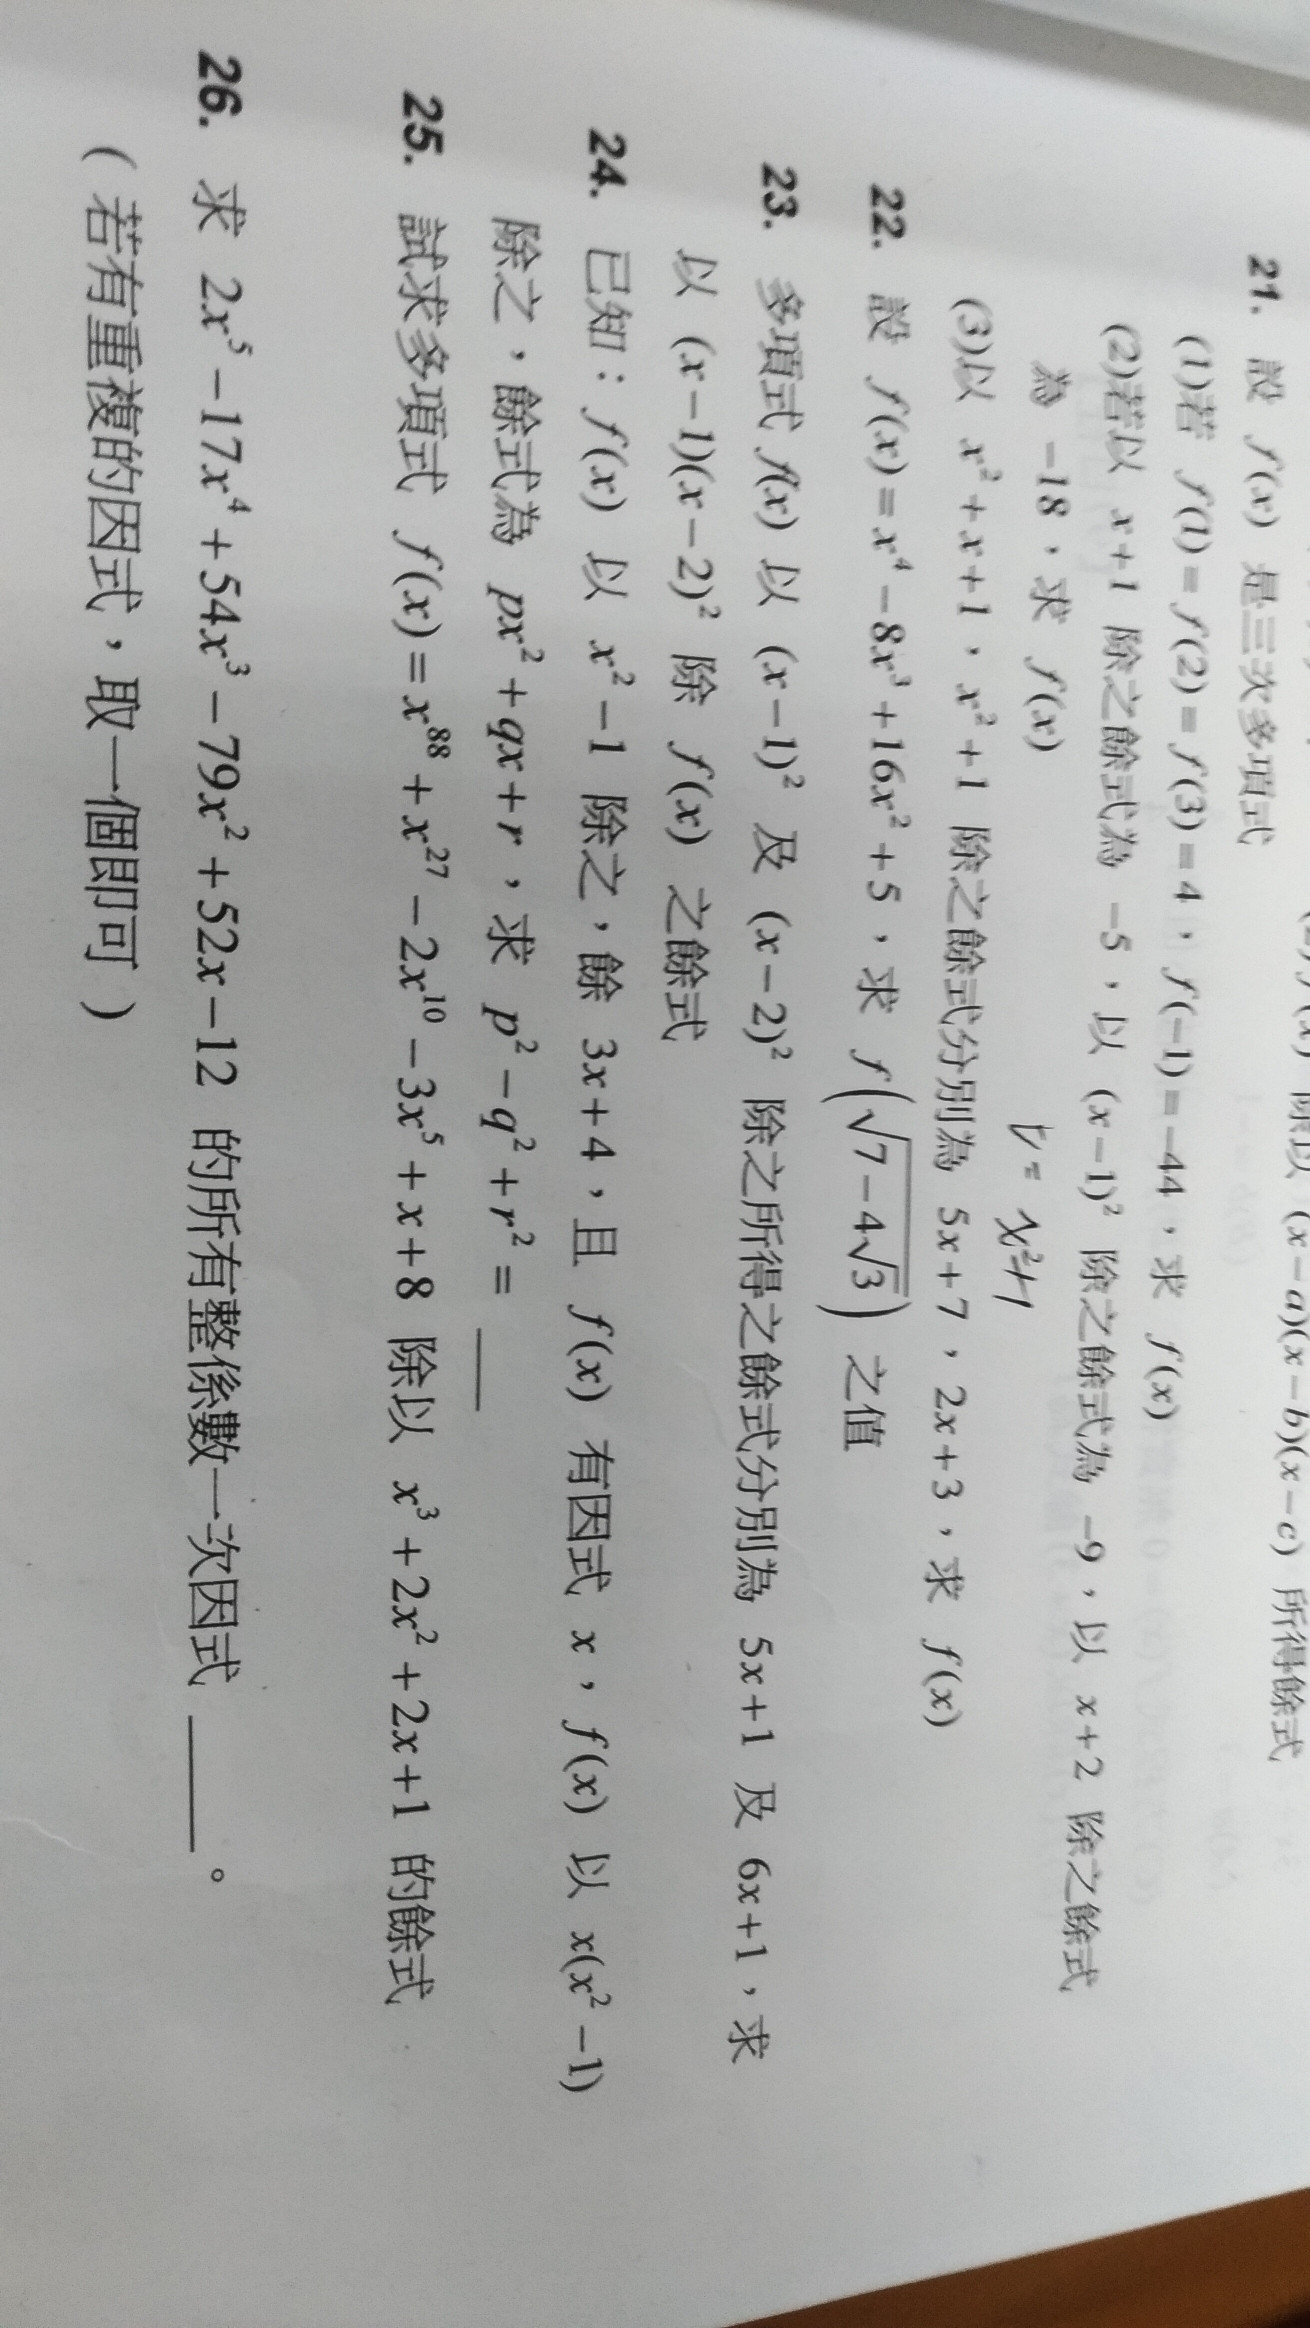 除以 (x−a)(x−b)(x−c) 所得餘式
21. 設 f(x) 是三次多項式
(1)若 f(1)=f(2)=f(3)=4，f(−1)=−44，求 f(x)
(2)若以 x+1 除之餘式為 −5，以 (x−1)² 除之餘式為 −9，以 x+2 除之餘式
為 −18，求 f(x)
x²+1
(3)以 x²+x+1，x²+1 除之餘式分別為 5x+7，2x+3，求 f(x)
22. 設 f(x)=x⁴−8x³+16x²+5，求 f(√(7−4√3)) 之值
23. 多項式 f(x) 以 (x−1)² 及 (x−2)² 除之所得之餘式分別為 5x+1 及 6x+1，求
以 (x−1)(x−2)² 除 f(x) 之餘式
24. 已知：f(x) 以 x²−1 除之，餘 3x+4，且 f(x) 有因式 x，f(x) 以 x(x²−1)
除之，餘式為 px²+qx+r，求 p²−q²+r²=
25. 試求多項式 f(x)=x⁸⁸+x²⁷−2x¹⁰−3x⁵+x+8 除以 x³+2x²+2x+1 的餘式
26. 求 2x⁵−17x⁴+54x³−79x²+52x−12 的所有整係數一次因式 ______。
（若有重複的因式，取一個即可）